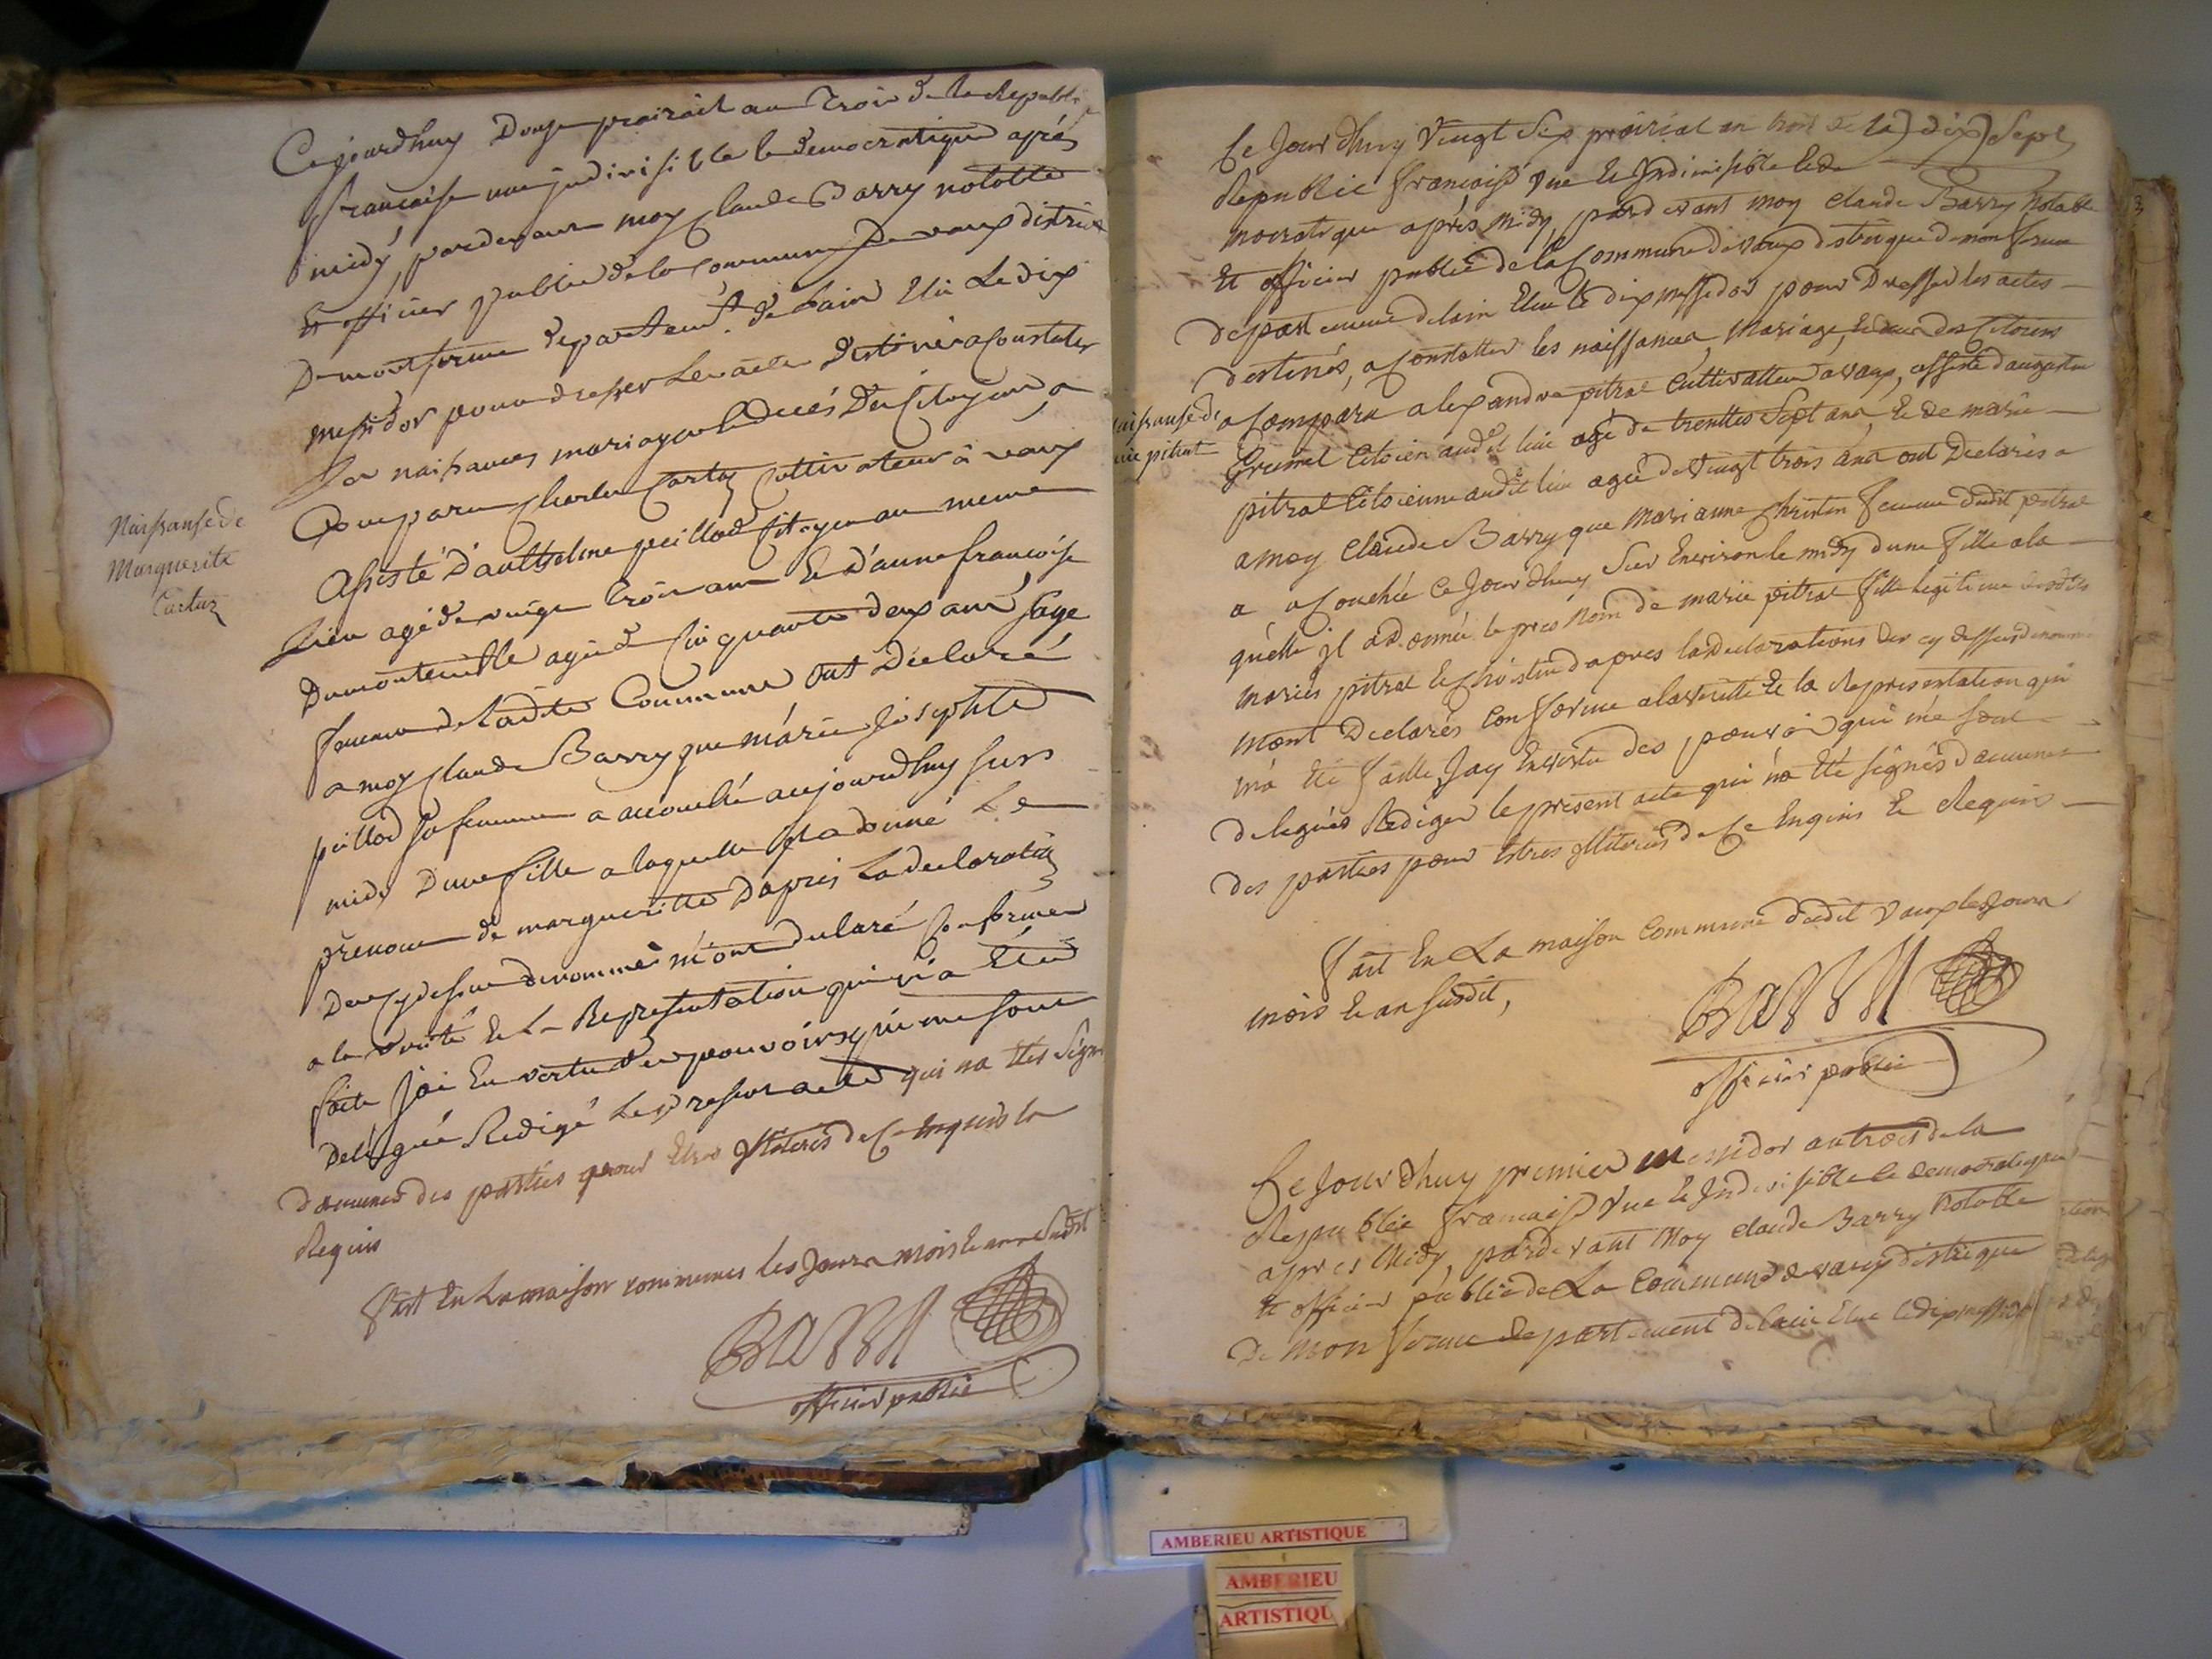 Cejourdhuy Douze prairial an Trois de la Republi
française une jndivisible le democratique aprés
midy, pardevant moy Claude Barry notable
et officier public de la Commune de vaux district
De montferme departemt. de Lain Elu Le dix
messidor pour dresser Les actes destinés a Constater
Les naissances mariages et decés Des Citoyens a
Comparu Charles Cartaz Cultivateur à vaux
Assisté D'anthelme peillod Citoyen au meme
Lieu agé de vingt trois ans et D'anne françoise
Dumonteuille agée de Cinquante deux ans, sage
femme de ladite Commune ont Déclaré
a moy Claude Barry que márie Josephte
peillod sa femme a accouché aujourdhuy surs
midy D'une fille a laquelle il a donné Le
prénom de margueritte D'aprés La declaration
Des cy dessus denommés m'ont declaré Conforme
a la vérité et La Representation qui m'a Eté
faite J'ai En vertu des pouvoirs qui me sont
Delégué Redigé Le present acte qui na étés Signé
daucunes des parties pour Etres jlliterés de Ce Enquis Et
Requis
Fait En La maison communes les Jours mois et ans Sudit
Barry
officier public
Naissanse de
Marguerite
Cartaz
Ce Jourdhuy vingt Six prairial an trois de la) dix) Sept
Republic françoise vne Et Jndivisible Et de
mocratique aprés midy, pardevant moy Claude Barry Notable
Et officier public de la Commune de vaux destrique de monferme
departement delain Elue le dix messidor pour Dresser les actes
destinés, a Constatter les naissances, Mariage, Et decés des Citoiens
a Comparu alexandre pitrat Cultivatteur a vaux, assisté d'augustin
Grumel Citoien audit lieu agé de trenttes Sept ans, Et de marie
pitrat Citoienne audit lieu agée de vingt trois ans ont Declarés a
a moy Claude Barry que Marianne Christin femme dudit pitrat
a acouchée Ce Jourdhuy Sur Environ le midy dune fille a la
quelle jl a donnée le pres Nom de marie pitrat fille legitime desdits
mariés pitrat Et Christin d'apres la declarations des cy dessus denommé
mont Declarés Conforme a la verité Et la Representation qui
m'a Eté faitte, Jay En vertu des pouvoir qui me sont
delegués Rediger le present acte qui na Eté signés daucunes
des parties pour Estres jlliterés de Ce Enquis Et Requis
Fait En La maison Commune dudit vaux les Jours
mois Et an susdit,
Barry
officier public
aissanse de
rie pitrat
Ce Jourdhuy premier messidor an trois de la
Republic francaise Vne Et Jndivisible Et democratique
apres Midy, pardevant Moy Claude Barry Notable
Et officier public de La Commune de vaux distrique
De Mon ferme departement delain Elue le dix messidor
AMBERIEU ARTISTIQUE
AMBERIEU
ARTISTIQU